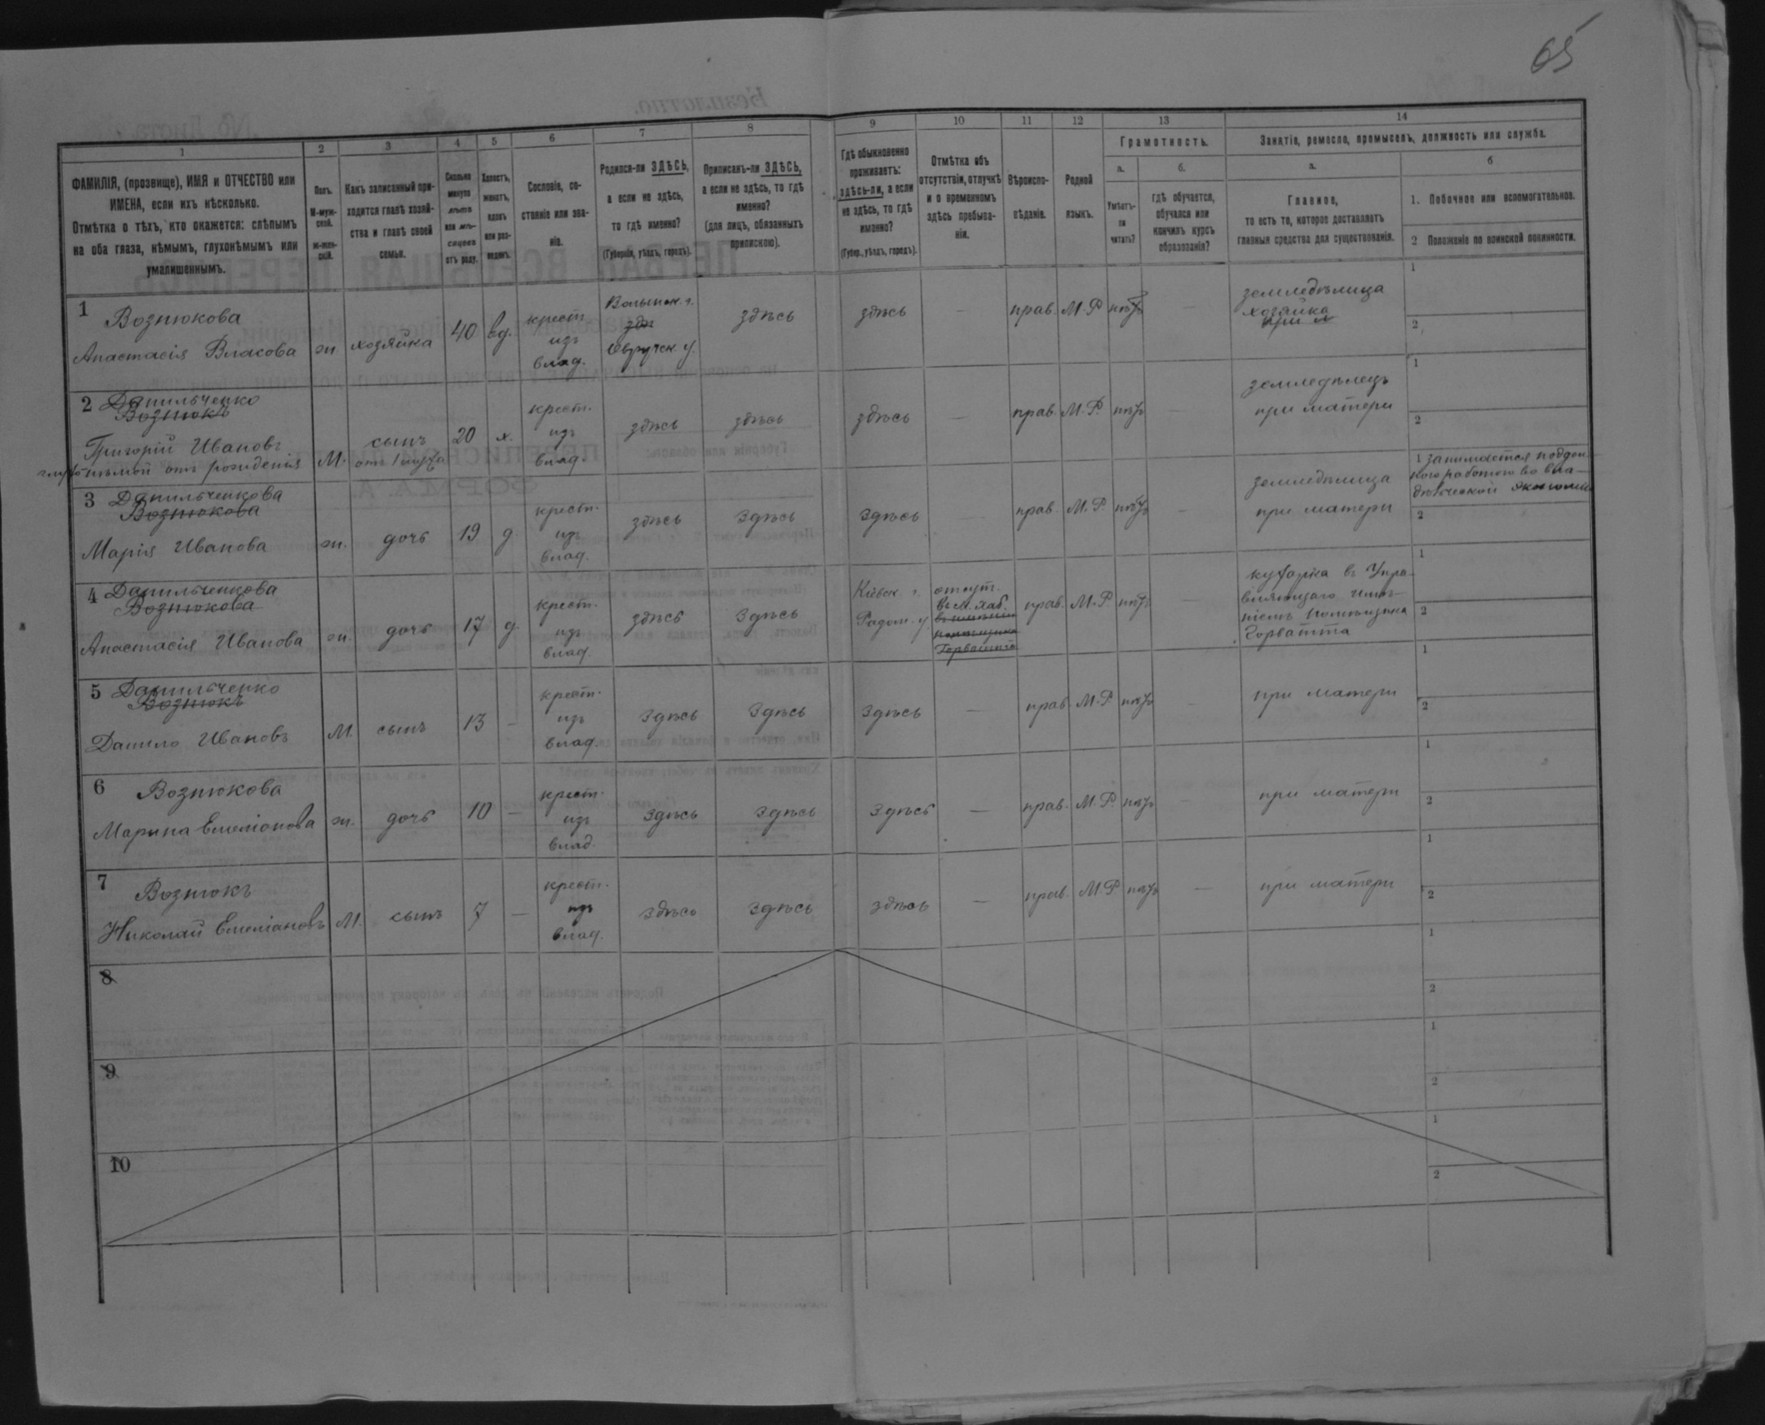 65
1
2
3
4
5
6
7
8
9
10
11
12
13
14
ФАМИЛІЯ, (прозвище), ИМЯ и ОТЧЕСТВО или
ИМЕНА, если ихъ нѣсколько.
Отмѣтка о тѣхъ, кто окажется: слѣпымъ
на оба глаза, нѣмымъ, глухонѣмымъ или
умалишеннымъ.
Полъ.
М-муж-
ской.
Ж-жен-
скій.
Какъ записанный при-
ходится главѣ хозяй-
ства и главѣ своей
семьи.
Сколько
минуло
лѣтъ
или мѣ-
сяцевъ
отъ роду.
Холостъ,
женатъ,
вдовъ
или раз-
веденъ.
Сословіе, со-
стояніе или зва-
ніе.
Родился-ли ЗДѢСЬ,
а если не здѣсь,
то гдѣ именно?
(Губернія, уѣздъ, городъ).
Приписанъ-ли ЗДѢСЬ,
а если не здѣсь, то гдѣ
именно?
(для лицъ, обязанныхъ
припискою).
Гдѣ обыкновенно
проживаетъ:
здѣсь-ли, а если
не здѣсь, то гдѣ
именно?
(Губер., уѣздъ, городъ).
Отмѣтка объ
отсутствіи, отлучкѣ
и о временномъ
здѣсь пребыва-
ніи.
Вѣроиспо-
вѣданіе.
Родной
языкъ.
Грамотность.
а.
Умѣетъ-
ли
читать?
б.
гдѣ обучается,
обучался или
кончилъ курсъ
образованія?
Занятіе, ремесло, промыселъ, должность или служба.
а.
Главное,
то есть то, которое доставляетъ
главныя средства для существованія.
б
1. Побочное или вспомогательное.
2 Положеніе по воинской повинности.
1 Вознюкова
Анастасія Власова
ж.
хозяйка
40
вд.
крест.
изъ
влад.
Волынск. г.
здѣ
Овручск. у.
здѣсь
здѣсь
—
прав.
М.Р
нѣтъ
—
земледѣлица
хозяйка
1
2
2 Данильченко
Вознюкъ
Григорій Ивановъ
глухонѣмой отъ рожденія
М.
сынъ
20
х.
крест.
изъ
влад.
здѣсь
здѣсь
здѣсь
—
прав.
М.Р.
нѣтъ
—
земледѣлецъ
при матери
1
2
3 Данильченкова
Вознюкова
Марія Иванова
ж.
дочь
19
д
крест.
изъ
влад.
здѣсь
здѣсь
здѣсь
—
прав.
М.Р.
нѣтъ
—
земледѣлица
при матери
1 занимается поден-
ною работою во вла-
дѣльческой экономіи
2
4 Данильченкова
Вознюкова
Анастасія Иванова
ж.
дочь
17
д
крест.
изъ
влад.
здѣсь
здѣсь
Кіевск. г.
Радом. у
отсут.
въ м. Хаб.
въ имѣніи
помѣщика
Горватта
прав.
М.Р
нѣтъ
—
кухарка въ Упра-
вляющаго имѣ-
ніемъ помѣщика
Горватта
1
2
5 Данильченко
Вознюкъ
Данило Ивановъ
М.
сынъ
13
—
крест.
изъ
влад.
здѣсь
здѣсь
здѣсь
—
прав.
М.Р
нѣтъ
при матери
1
2
6 Вознюкова
Марина Емеліонова
ж.
дочь
10
—
крест.
изъ
влад.
здѣсь
здѣсь
здѣсь
—
прав.
М.Р
нѣтъ
—
при матери
1
2
7 Вознюкъ
Николай Емеліановъ
М.
сынъ
7
—
крест.
изъ
влад.
здѣсь
здѣсь
здѣсь
—
прав.
М.Р
нѣтъ
—
при матери
1
2
8
1
2
9
1
2
10
1
2